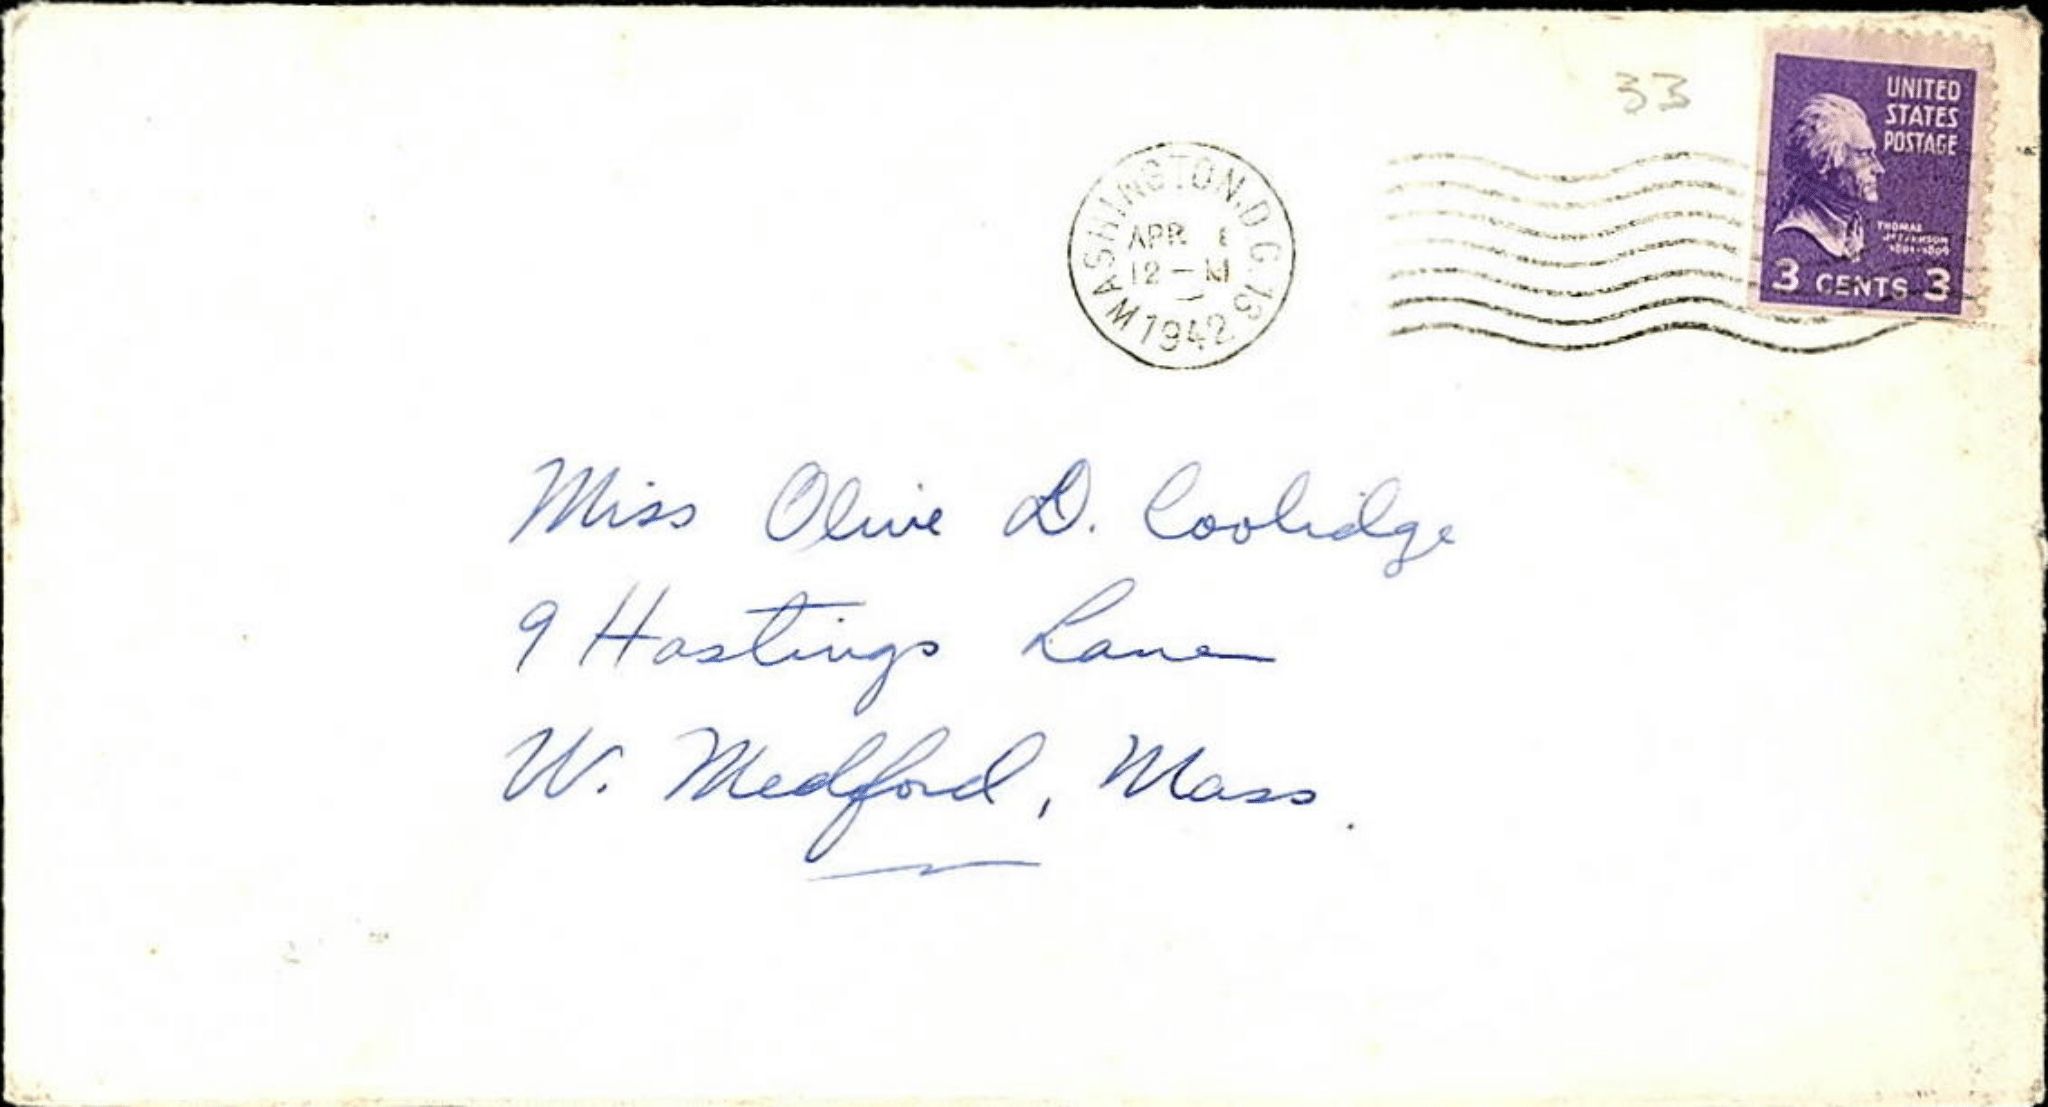 33
UNITED
STATES
POSTAGE
THOMAS
JEFFERSON
1801-1809
3 CENTS 3
WASHINGTON, D.C.
APR
12 – M
1942
Miss Olive D. Coolidge
9 Hastings Lane
W. Medford, Mass.